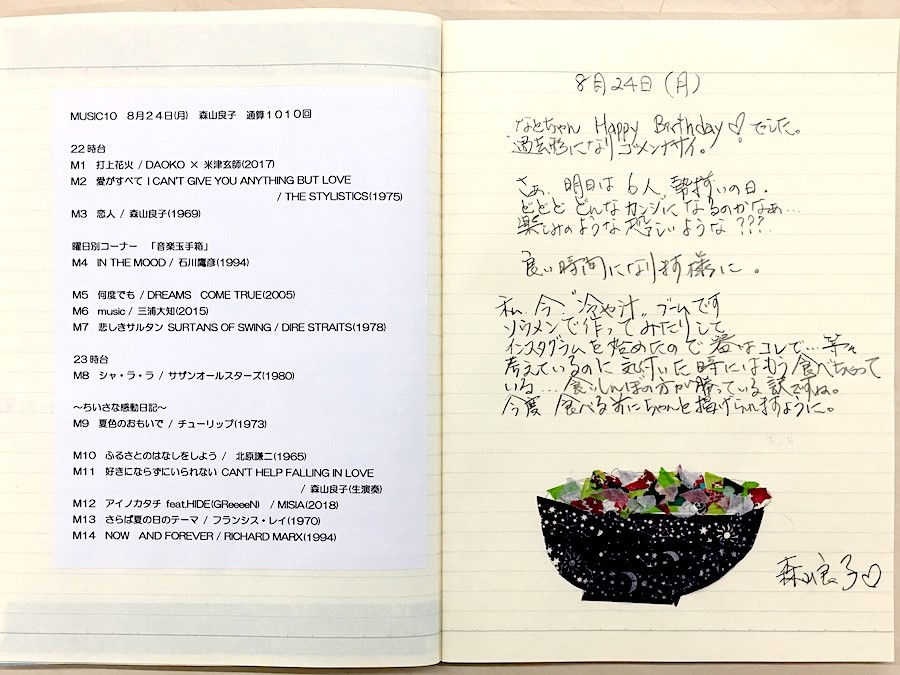 MUSIC10　8月24日(月)　森山良子　通算1010回
22時台
M1　打上花火 / DAOKO × 米津玄師(2017)
M2　愛がすべて I CAN'T GIVE YOU ANYTHING BUT LOVE
/ THE STYLISTICS(1975)
M3　恋人 / 森山良子(1969)
曜日別コーナー　「音楽玉手箱」
M4　IN THE MOOD / 石川鷹彦(1994)
M5　何度でも / DREAMS　COME TRUE(2005)
M6　music / 三浦大知(2015)
M7　悲しきサルタン SURTANS OF SWING / DIRE STRAITS(1978)
23時台
M8　シャ・ラ・ラ / サザンオールスターズ(1980)
～ちいさな感動日記～
M9　夏色のおもいで / チューリップ(1973)
M10　ふるさとのはなしをしよう /　北原謙二(1965)
M11　好きにならずにいられない CAN'T HELP FALLING IN LOVE
/ 森山良子(生演奏)
M12　アイノカタチ feat.HIDE(GReeeeN)　/ MISIA(2018)
M13　さらば夏の日のテーマ / フランシス・レイ(1970)
M14　NOW　AND FOREVER / RICHARD MARX(1994)
8月24日(月)
なとちゃん Happy Birthday♡でした。
過去形になりゴメンナサイ。
さぁ、明日は6人勢揃いの日。
どどど どんなカンジになるのかなぁ…
楽しみのような恐ろしいような???
良い時間になります様に。
私、今、"冷や汁"ブームです
ソウメンで作ってみたりして
インスタグラムを始めたので 昼はコレで…等々
考えているのに 気付いた時にはもう食べちゃって
いる… 食いしんぼの方が勝っている訳ですね。
今度 食べる前にちゃんと揚げられますように。
森山良子♡